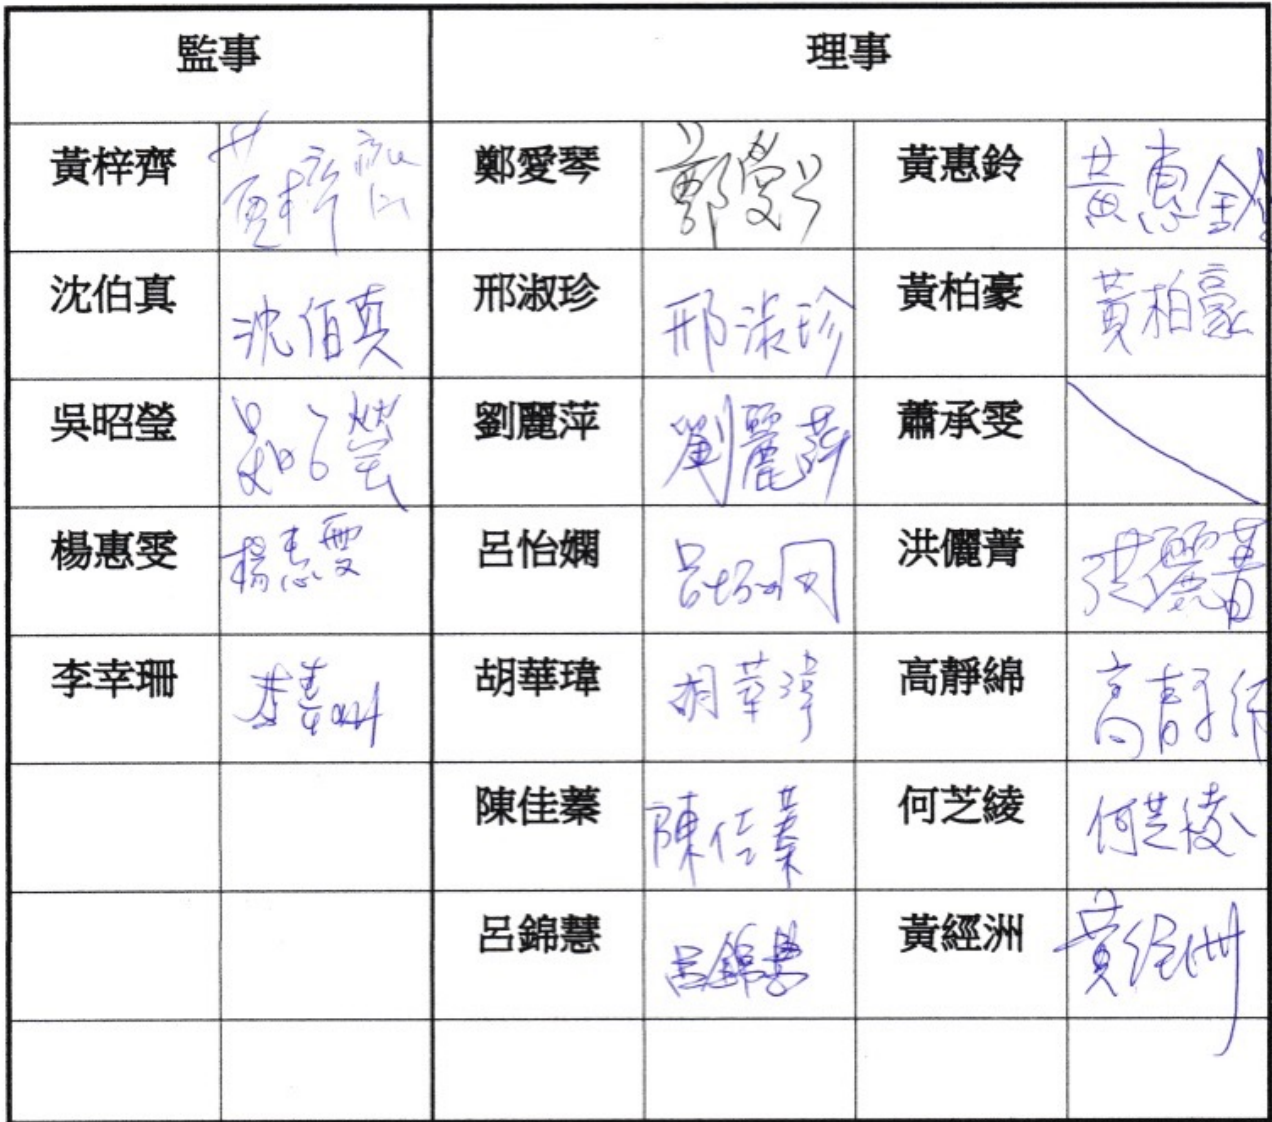 監事 理事
黃梓齊 黃梓齊 鄭愛琴 鄭愛琴 黃惠鈴 黃惠鈴
沈伯真 沈伯真 邢淑珍 邢淑珍 黃柏豪 黃柏豪
吳昭瑩 劉麗萍 劉麗萍 蕭承雯
楊惠雯 楊惠雯 呂怡嫻 洪儷菁
李幸珊 胡華瑋 胡華瑋 高靜綿
陳佳蓁 陳佳蓁 何芝綾 何芝綾
呂錦慧 呂錦慧 黃經洲 黃經洲